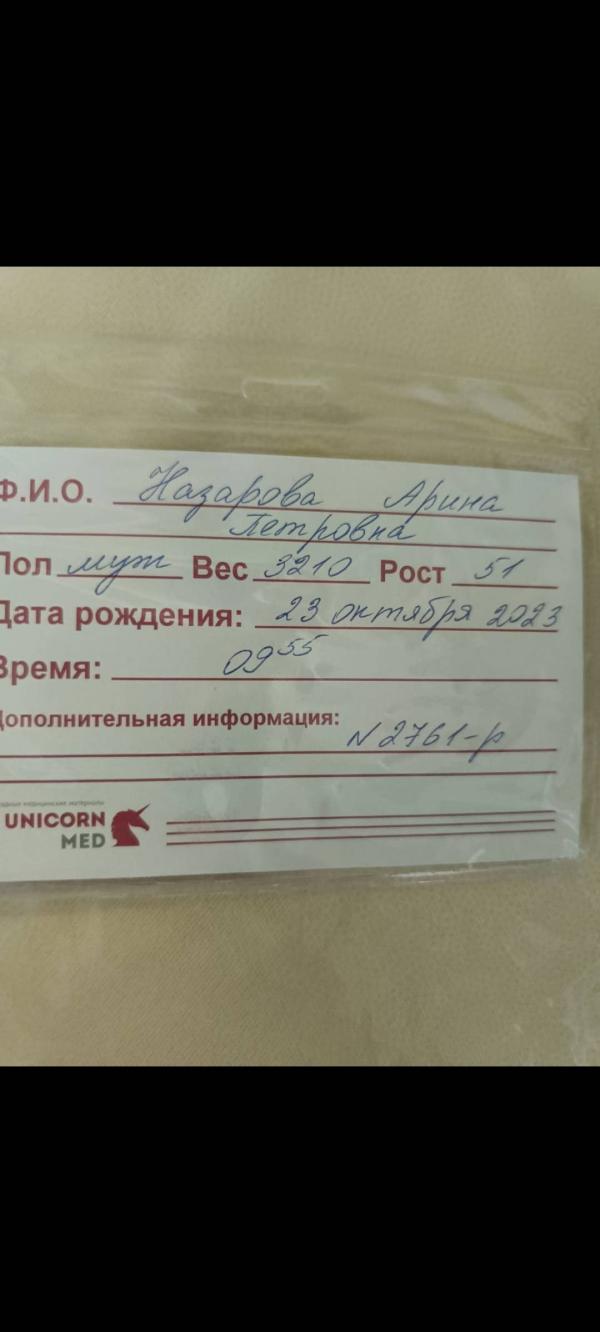 Ф.И.О. Назарова Арина
Петровна
Пол муж Вес 3210 Рост 51
Дата рождения: 23 октября 2023
Время: 09 55
Дополнительная информация:
N 2761-р
медицинские материалы
UNICORN
MED